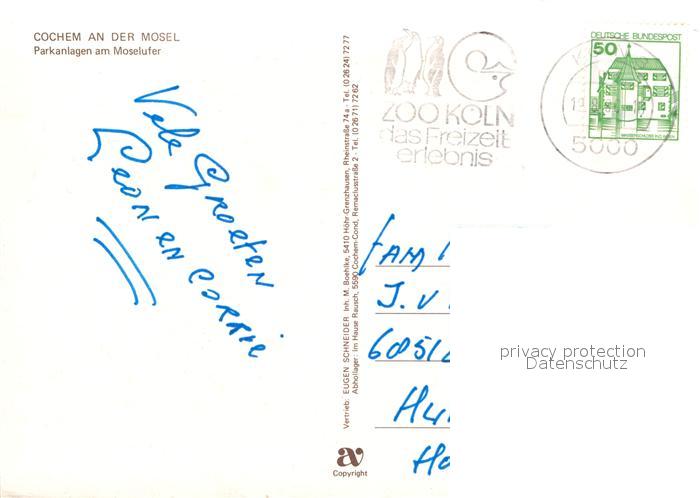 COCHEM AN DER MOSEL
Parkanlagen am Moselufer
Vele Groeten
Leon en Corrie
Vertrieb: EUGEN SCHNEIDER Inh. M. Boehlke, 5410 Höhr-Grenzhausen, Rheinstraße 74a · Tel. (0 26 24) 72 77
Abhollager: Im Hause Rausch, 5590 Cochem-Cond, Remaclusstraße 2 · Tel. (0 26 71) 72 62
av
Copyright
ZOO KÖLN
das Freizeit
erlebnis
5000
DEUTSCHE BUNDESPOST
50
WASSERSCHLOSS INZLINGEN
FAM
J. V
Hu
Ho
privacy protection
Datenschutz